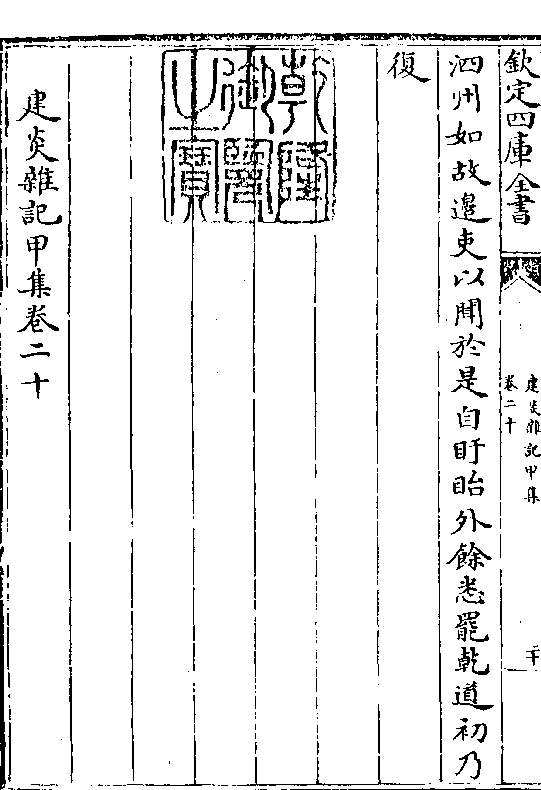 欽定四庫全書
建炎雜記甲集
卷二十
二十
泗州如故邊吏以聞於是自盱眙外餘悉罷乾道初乃
復
乾隆御覽之寶
建炎雜記甲集卷二十